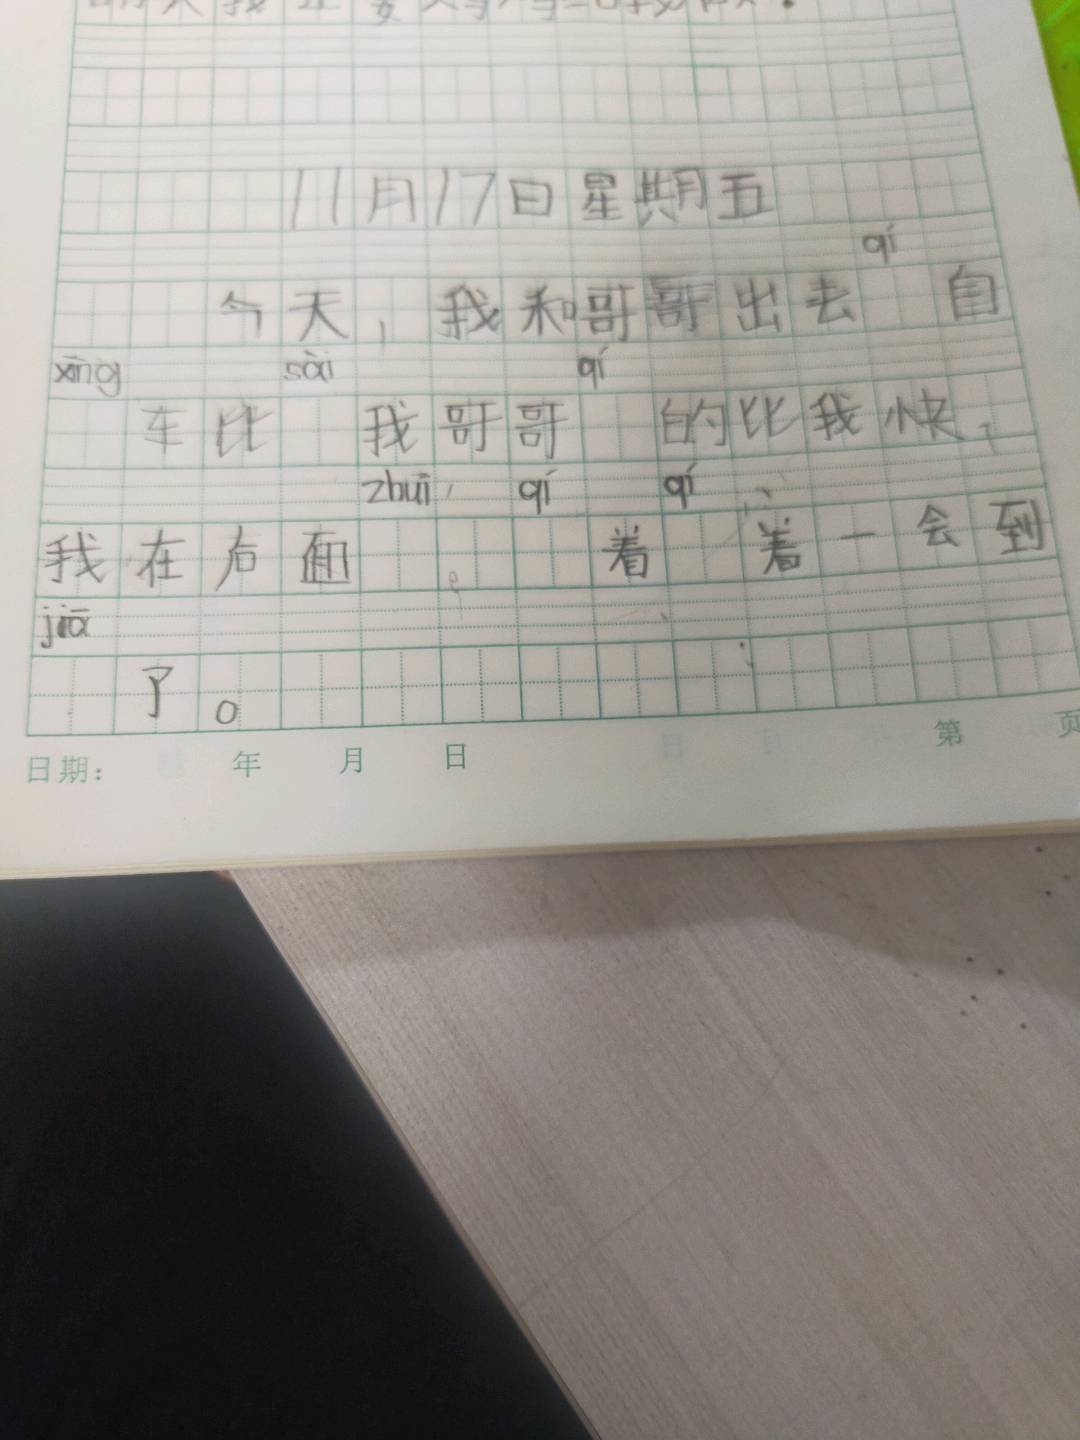 11月17日星期五
qí
今天，我和哥哥出去 自
xīng sài qí
车比 我哥哥 的比我快，
zhuī， qí qí
我在右面 。 着 着一会到
jiā
了。
日期： 年 月 日 第 页